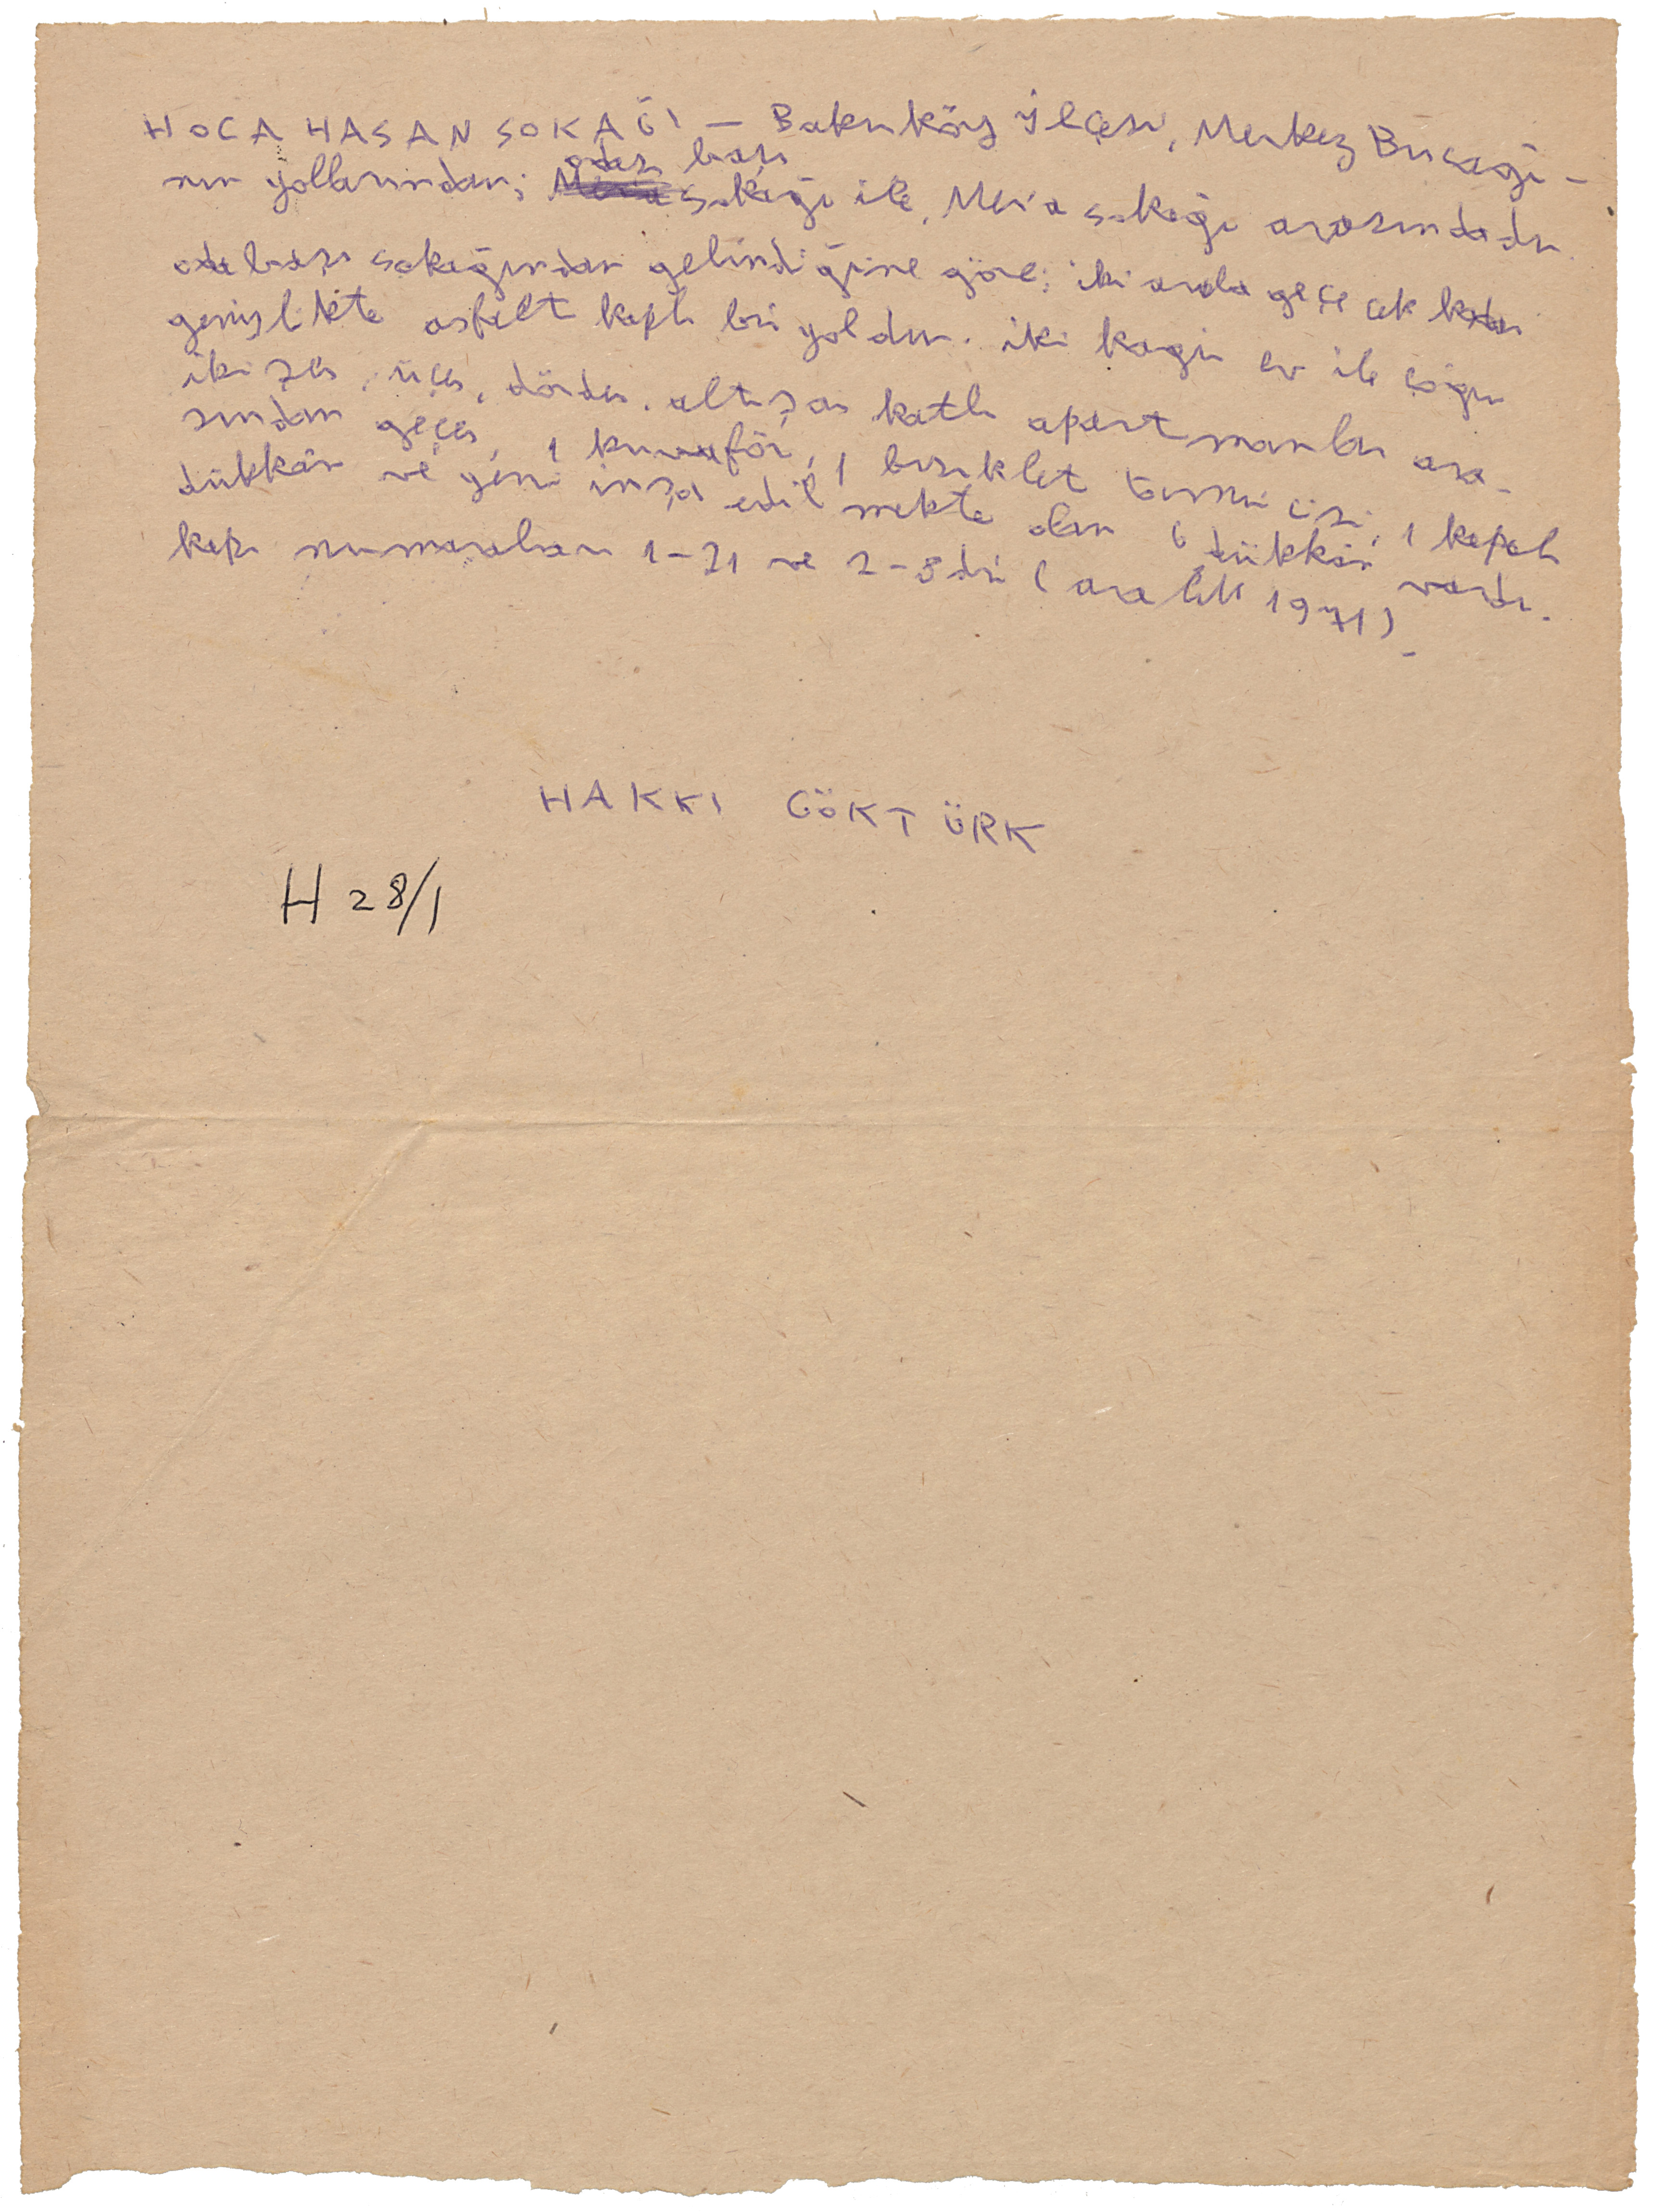 HOCA HASAN SOKAĞI — Bakırköy İlçesi, Merkez Bucağı-
nın yollarından; odabaşı sokağı ile, Mera sokağı arasındadır.
odabaşı sokağından gelindiğine göre; iki araba geçecek kadar
genişlikte asfalt kaplı bir yoldur. iki kagir ev ile çoğu
ikişer, üçer, dörder, altışar katlı apartmanlar ara-
sından geçer, 1 kuvaför, 1 bisiklet tamircisi, 1 kapalı
dükkân ve yeni inşa edilmekte olan 6 dükkân vardır.
kapı numaraları 1-21 ve 2-8 dir (aralık 1971)
HAKKI GÖKTÜRK
H 28/1